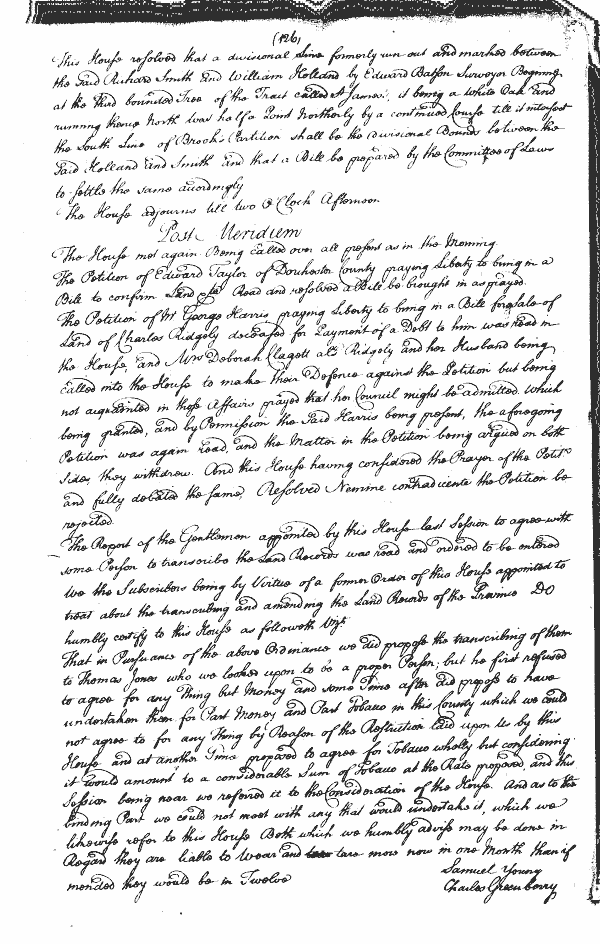 (126)
This House resolved that a divisional Line formerly run out and marked between
the said Richard Smith and William Holland by Edward Batson Surveyor Begining
at the third bounded Tree of the Tract called St James's, it being a White Oak and
running thence North West half a Point Northerly by a continued Course till it intersect
the South Line of Brooks Partition shall be the divisional Bounds between the
said Holland and Smith and that a Bill be prepared by the Committee of Laws
to settle the same accordingly
The House adjourns till two O'Clock Afternoon
Post Meridiem
The House met again. Being called over all present as in the Morning
The Petition of Edward Taylor of Dorchester County praying Liberty to bring in a
Bill to confirm Land Read and resolved a Bill be brought in as prayed.
The Petition of Mr George Harris praying Liberty to bring in a Bill for sale of
Land of Charles Ridgely deceased for Payment of a Debt to him was read in
the House, and Mrs Deborah Clagett als Ridgely and her Husband being
called into the House to make their Defence against the Petition but being
not acquainted in those Affairs prayed that her Council might be admitted which
being granted, and by Permission the said Harris being present, the aforegoing
Petition was again read, and the Matter in the Petition being argued on both
sides, they withdrew. And this House having considered the Prayer of the Petitr
and fully debated the same, Resolved Nemine contradicente the Petition be
rejected
The Report of the Gentlemen appointed by this House last Session to agree with
some Person to transcribe the Land Records was read and ordered to be entered
We the Subscribers being by Virtue of a former Order of this House appointed to
treat about the transcribing and amending the Land Records of the Province DO
humbly certify to this House as followeth Vizt
That in Pursuance of the above Ordinance we did propose the transcribing of them
to Thomas Jones who we looked upon to be a proper Person; but he first refused
to agree for any Thing but Money and some Time after did propose to have
undertaken them for Part Money and Part Tobacco in this County which we could
not agree to for any Thing by Reason of the Restriction laid upon Us by this
House and at another Time proposed to agree for Tobacco wholly but considering
it would amount to a considerable Sum of Tobacco at the Rate proposed, and this
Session being near we referred it to the Consideration of the House. And as to the
binding Part we could not meet with any that would undertake it, which we
likewise refer to this House Both which we humbly advise may be done in
Regard they are liable to Wear and tare more now in one Month than if
mended they would be in Twelve
Samuel Young
Charles Greenberry